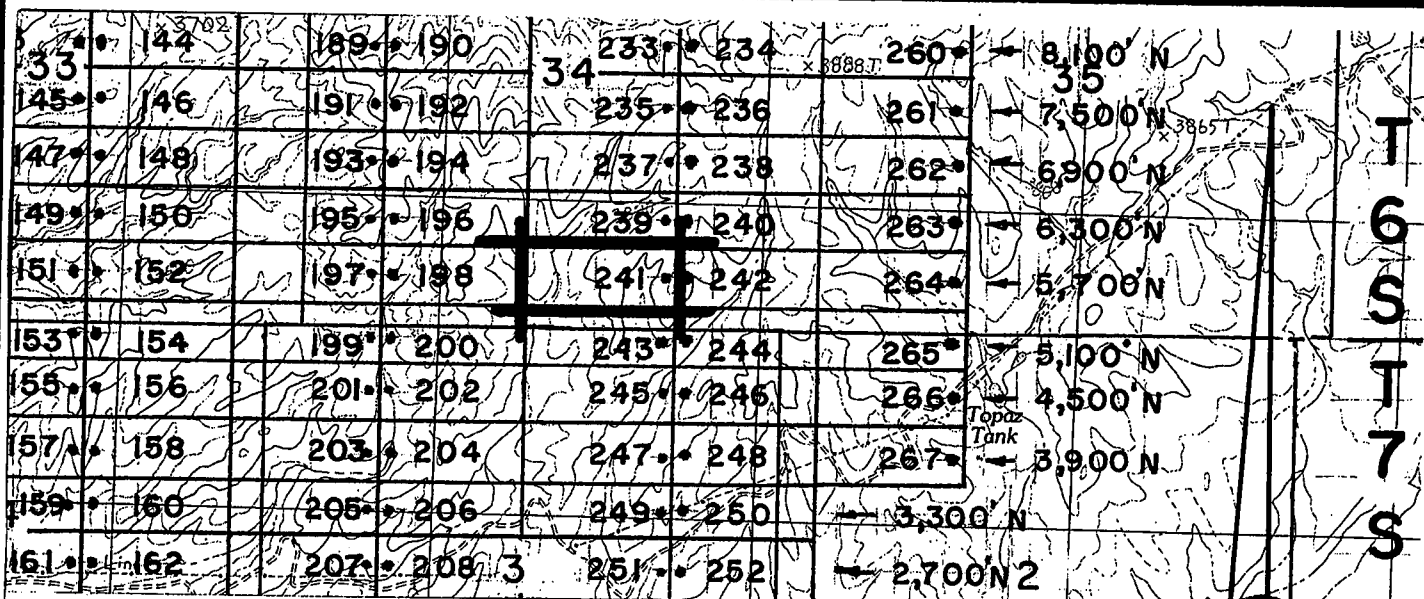 × 3702
144 189 190 233 234 260 8,100' N
33 34 × 3888T 35
145 146 191 192 235 236 261 7,500' N
× 3865T
147 148 193 194 237 238 262 6,900' N
149 150 195 196 239 240 263 6,300' N
151 152 197 198 241 242 264 5,700' N
153 154 199 200 243 244 265 5,100' N
155 156 201 202 245 246 266 4,500' N
Topaz
Tank
157 158 203 204 247 248 267 3,900' N
159 160 205 206 249 250 3,300' N
161 162 207 208 3 251 252 2,700' N 2
T
6
S
T
7
S